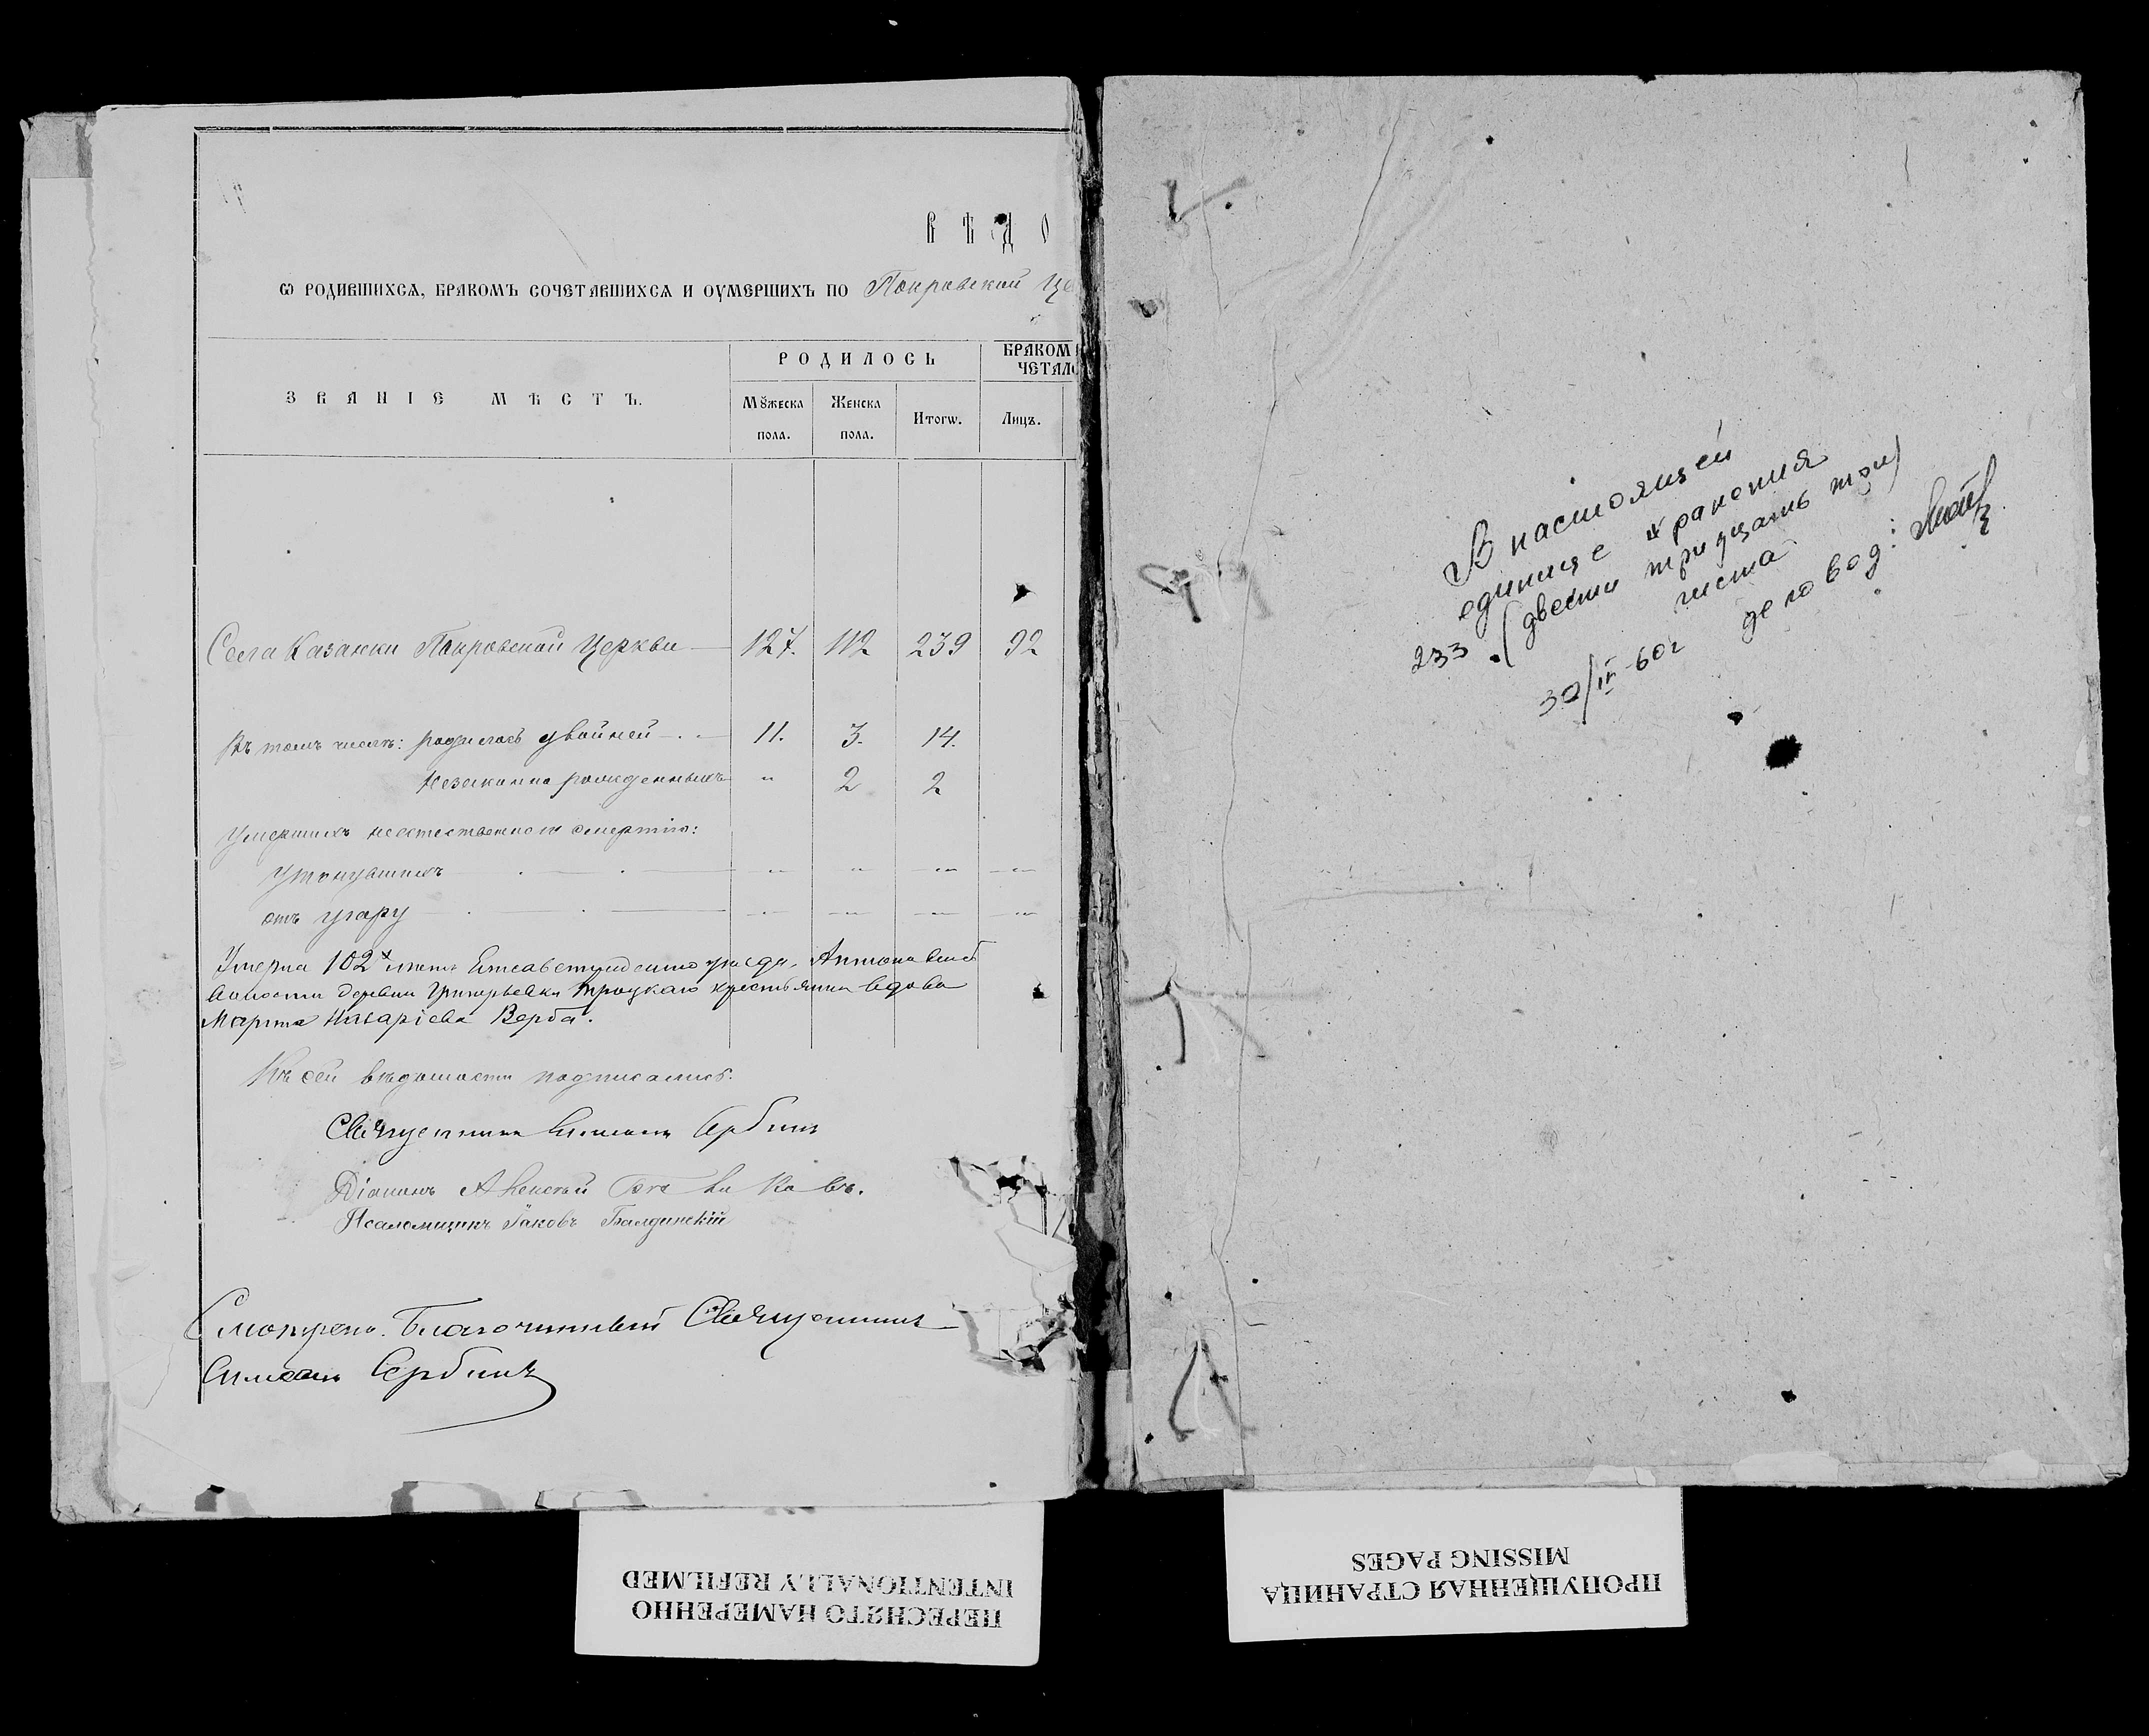 ВѢДО
Ѡ РОДИВШИХСѦ, БРАКОМЪ СОЧЕТАВШИХСѦ И ОУМЕРШИХЪ ПО Покровской Це
ЗВАНІЕ МѢСТЪ.
РОДИЛОСЬ
БРАКОМ
ЧЕТАЛО
Мꙋжеска пола.
Женска пола.
Итогѡ.
Лицъ.
Села Казанки Покровской Церкви 127. 112 239 92
Въ томъ числѣ: родилось двойней 11. 3. 14.
Незаконно рожденныхъ " 2 2
Умершихъ неестественною смертію:
утонувшихъ " " " "
отъ угару " " " "
Умерла 102х лѣтъ Елисаветградскаго уѣзда,
волости деревни Григорьевки Троцкаго крестьянина вдова
Марѳа Назаріева Верба.
Къ сей вѣдомости подписались:
Священникъ Симеонъ Сербинъ
Діаконъ Алексѣй
Псаломщикъ Іаковъ Балдинскій
Смотрѣно. Благочинный Священникъ
Симеонъ Сербинъ
В настоящей
единице хранения
233 (двести тридцать три)
листа
30/IV-60г деловод:
ПЕРЕСНЯТО НАМЕРЕННО
INTENTIONALLY REFILMED
ПРОПУЩЕННАЯ СТРАНИЦА
MISSING PAGES